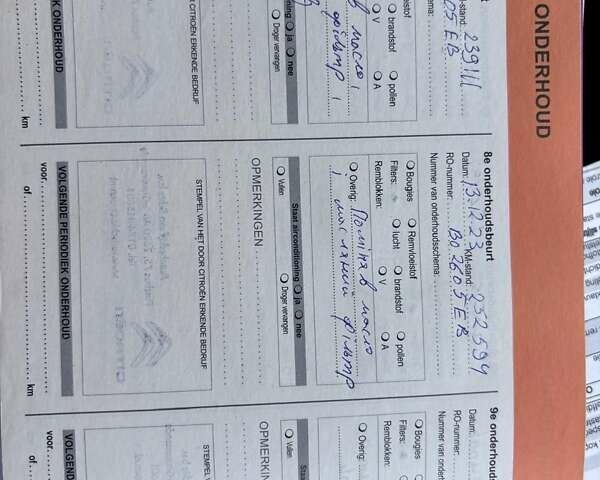 ONDERHOUD
M-stand: 239111
05 EB
brandstof
pollen
V
A
в масло,
фільтр
ja
nee
Droger vervangen
CITROËN ERKENDE BEDRIJF
DIEK ONDERHOUD
km
8e onderhoudsbeurt
Datum: 13.12.23 KM-stand: 252594
RO-nummer: BO2605EB
Nummer van onderhoudsschema:
Bougies
Remvloeistof
Filters:
lucht
brandstof
pollen
Remblokken:
V
A
Overig: Поміняв масло
і масляний фільтр
Staat airconditioning
ja
nee
Vullen
Droger vervangen
OPMERKINGEN
STEMPEL VAN HET DOOR CITROËN ERKENDE BEDRIJF
VOLGENDE PERIODIEK ONDERHOUD
voor
of
km
9e onderhouds
Datum:
RO-nummer:
Nummer van ondert
Bougies
Filters:
Remblokken:
Overig:
Staa
Vullen
OPMERKIN
STEMPEL VAN HET
VOLGEND
voor
of